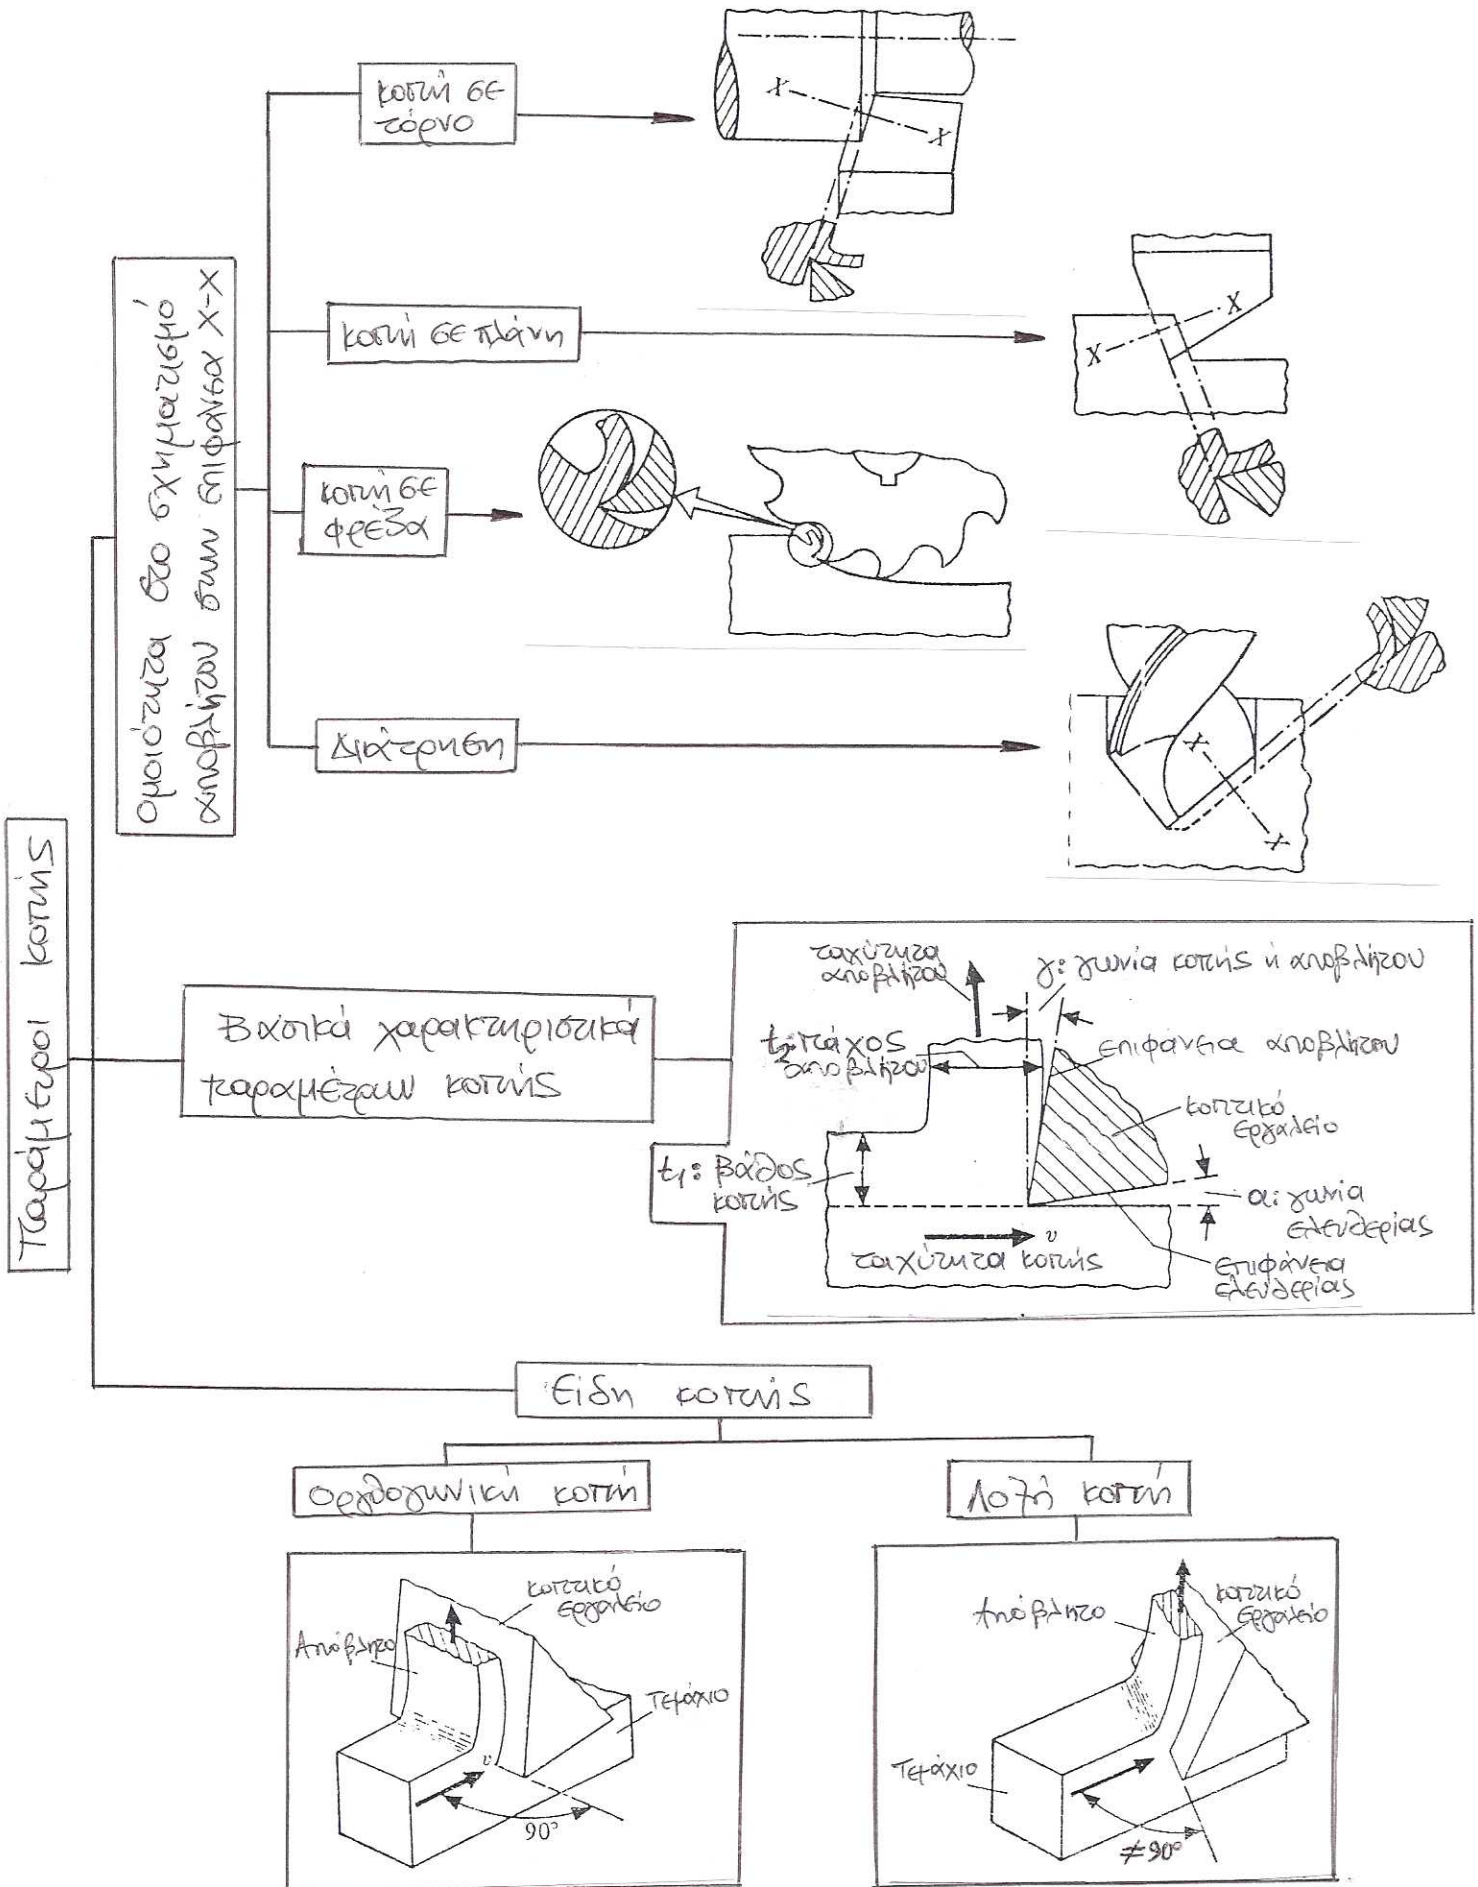 Παράμετροι κοπής
Ομοιότητα στο σχηματισμό
αποβλήτου στην επιφάνεια X-X
κοπή σε
τόρνο
X
X
κοπή σε πλάνη
X
X
κοπή σε
φρέζα
Διάτρηση
X
X
Βασικά χαρακτηριστικά
παραμέτρων κοπής
ταχύτητα
αποβλήτου
γ: γωνία κοπής ή αποβλήτου
t2: πάχος
αποβλήτου
επιφάνεια αποβλήτου
κοπτικό
εργαλείο
t1: βάθος
κοπής
α: γωνία
ελευθερίας
υ
ταχύτητα κοπής
επιφάνεια
ελευθερίας
Είδη κοπής
Ορθογωνική κοπή
Λοξή κοπή
κοπτικό
εργαλείο
Απόβλητο
Τεμάχιο
υ
90°
Απόβλητο
κοπτικό
εργαλείο
Τεμάχιο
≠90°